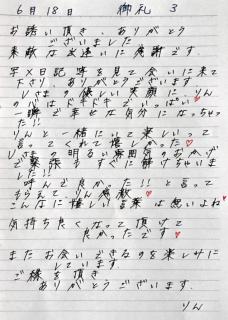 6月18日 御礼 3
お誘い頂き、ありがとう
ございました
素敵な出逢いに感謝です.
写メ日記 等を見て会いに来て
下さり ありがとうございます
Uさまの優しい笑顔に、りん
のハートはドキドキで いっぱい♥
一瞬で幸せな気分に なっちゃっ
た!!
りんと一緒にいて楽しいって
言ってくれて嬉しかった♥
Uさまの明るい雰囲気のおかげ
で緊張も すぐに解けちゃいま
した!!
呼んで良かった!! と言って
もらえて りん感激♥
こんなに嬉しい言葉は無いよね♥
気持ち良くなって頂けて
良かったです♥
またお会いできるのを楽しみに
しています
ご縁を頂き
ありがとうございます.
りん